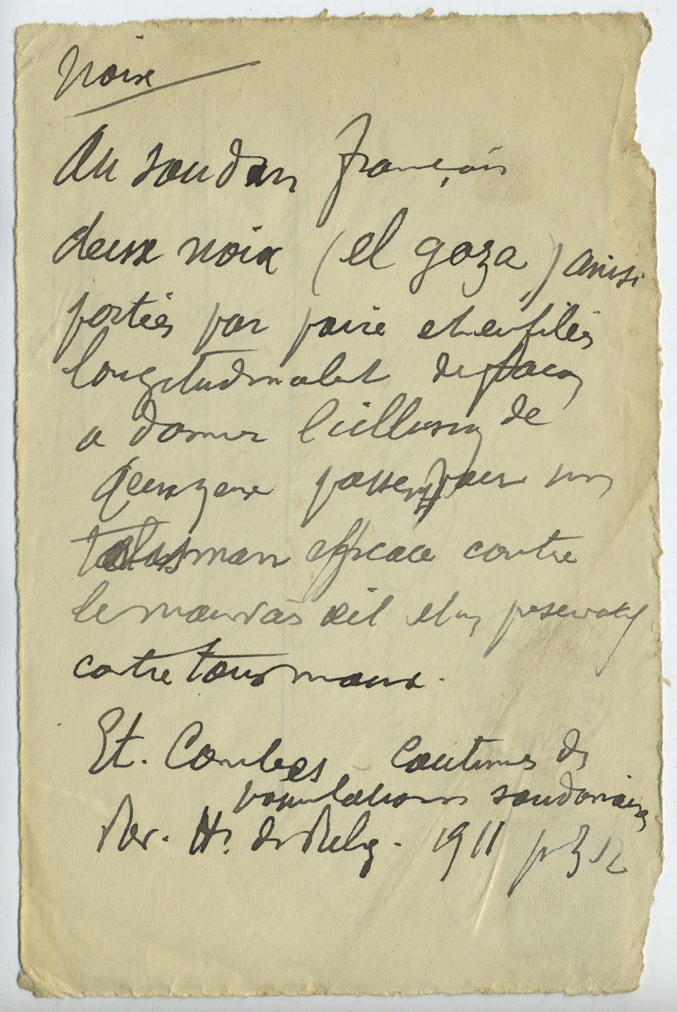 Noix
Au Soudan français
deux noix (el goza) ainsi
portées par paire et enfilées
longitudinalemt de façon
a donner l'illusion de
deux yeux passent pour un
talisman efficace contre
le mauvais œil et un préservatif
contre tous maux.
Et. Combes Coutumes des
populations soudanaises
Rev. H. de Relig. 1911 p.